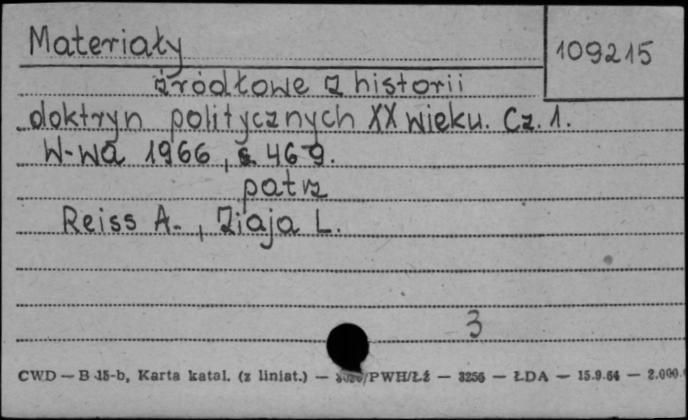 Materiały
109215
źródłowe z historii
doktryn politycznych XX wieku. Cz. 1.
W-wa 1966, s. 469.
patrz
Reiss A., Ziaja L.
3
CWD — B 15-b, Karta katal. (z liniat.) — /PWH/Łź — 3256 — ŁDA — 15.9.64 — 2.000.